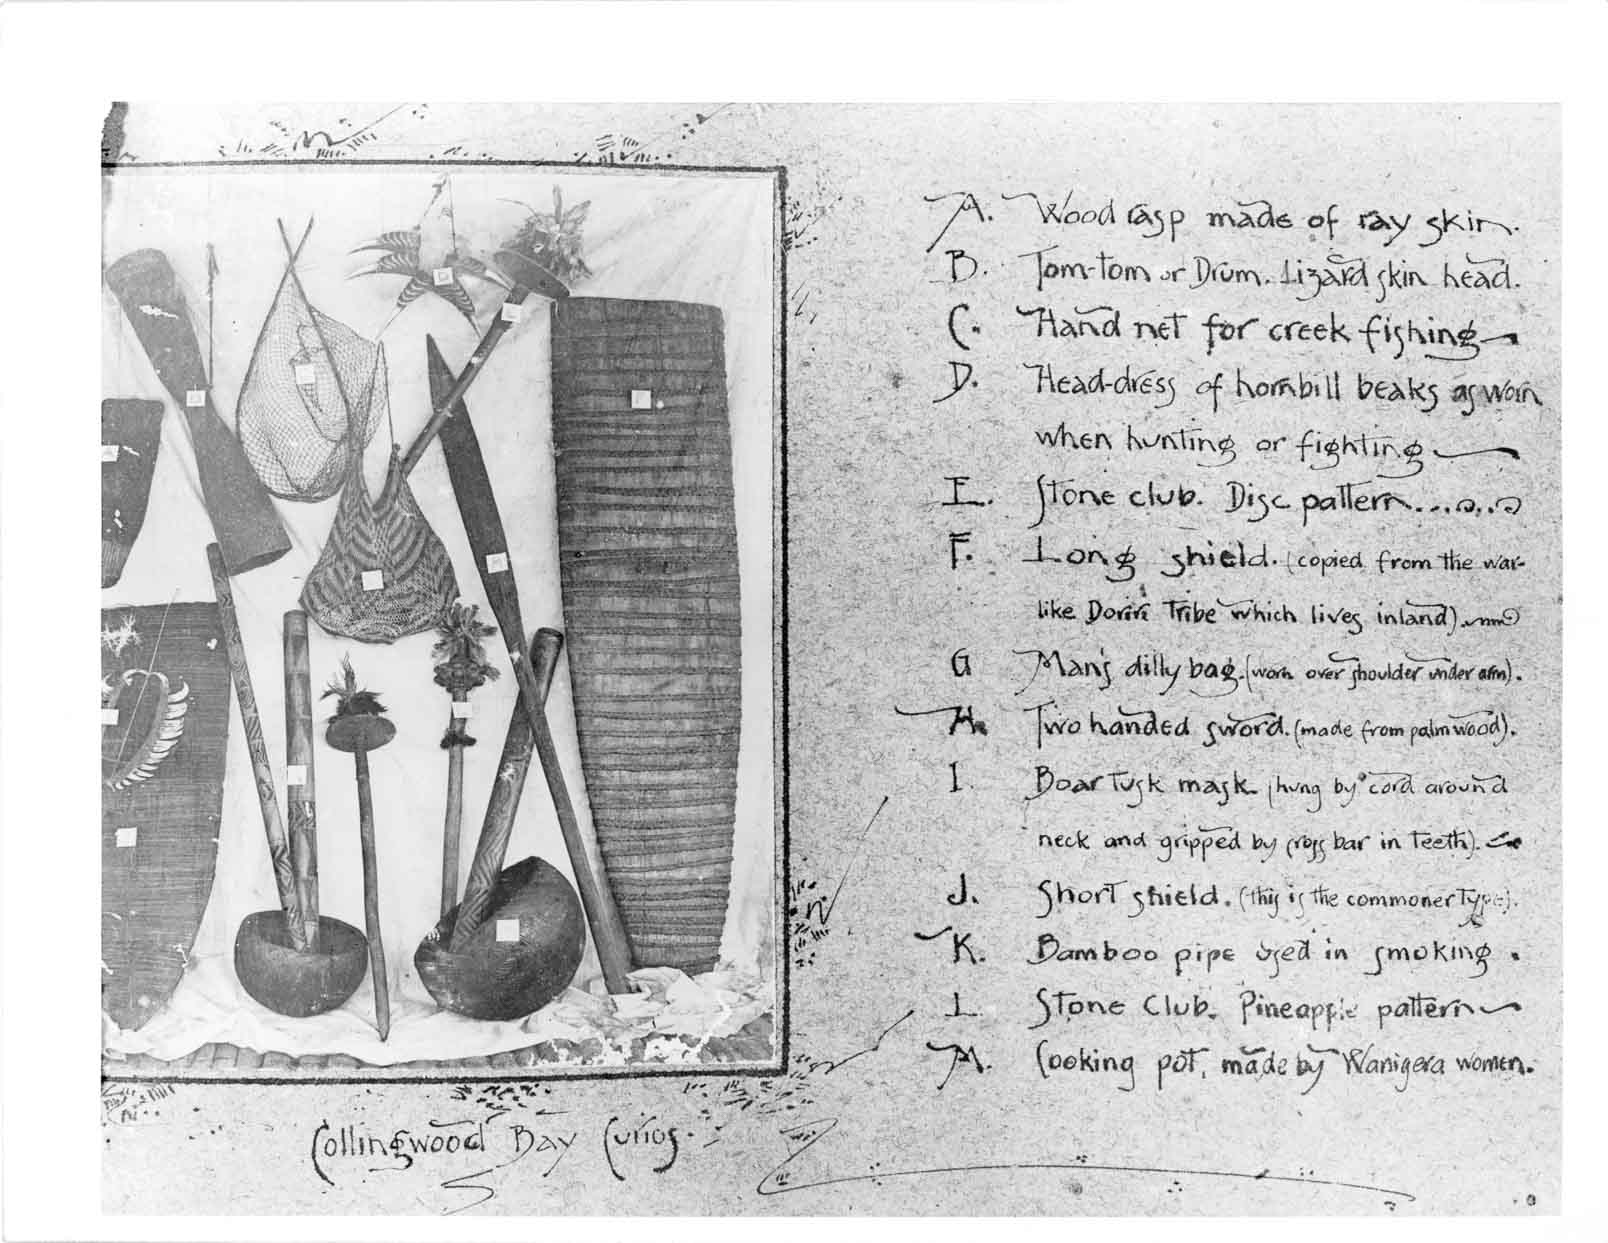 A. Wood rasp made of ray skin.
B. Tom-tom or Drum. Lizard skin head.
C. Hand net for creek fishing
D. Head-dress of hornbill beaks as worn
when hunting or fighting
E. Stone club. Disc pattern....
F. Long shield. (copied from the war-
like Doriri Tribe which lives inland).
G Man's dilly bag. (worn over shoulder under arm).
H. Two handed sword. (made from palm wood).
I. Boar Tusk mask (hung by cord around
neck and gripped by cross bar in Teeth).
J. Short shield. (this is the commoner Type).
K. Bamboo pipe used in smoking.
L. Stone Club. Pineapple pattern
M. Cooking pot, made by Wanigera women.
Collingwood Bay Curios.